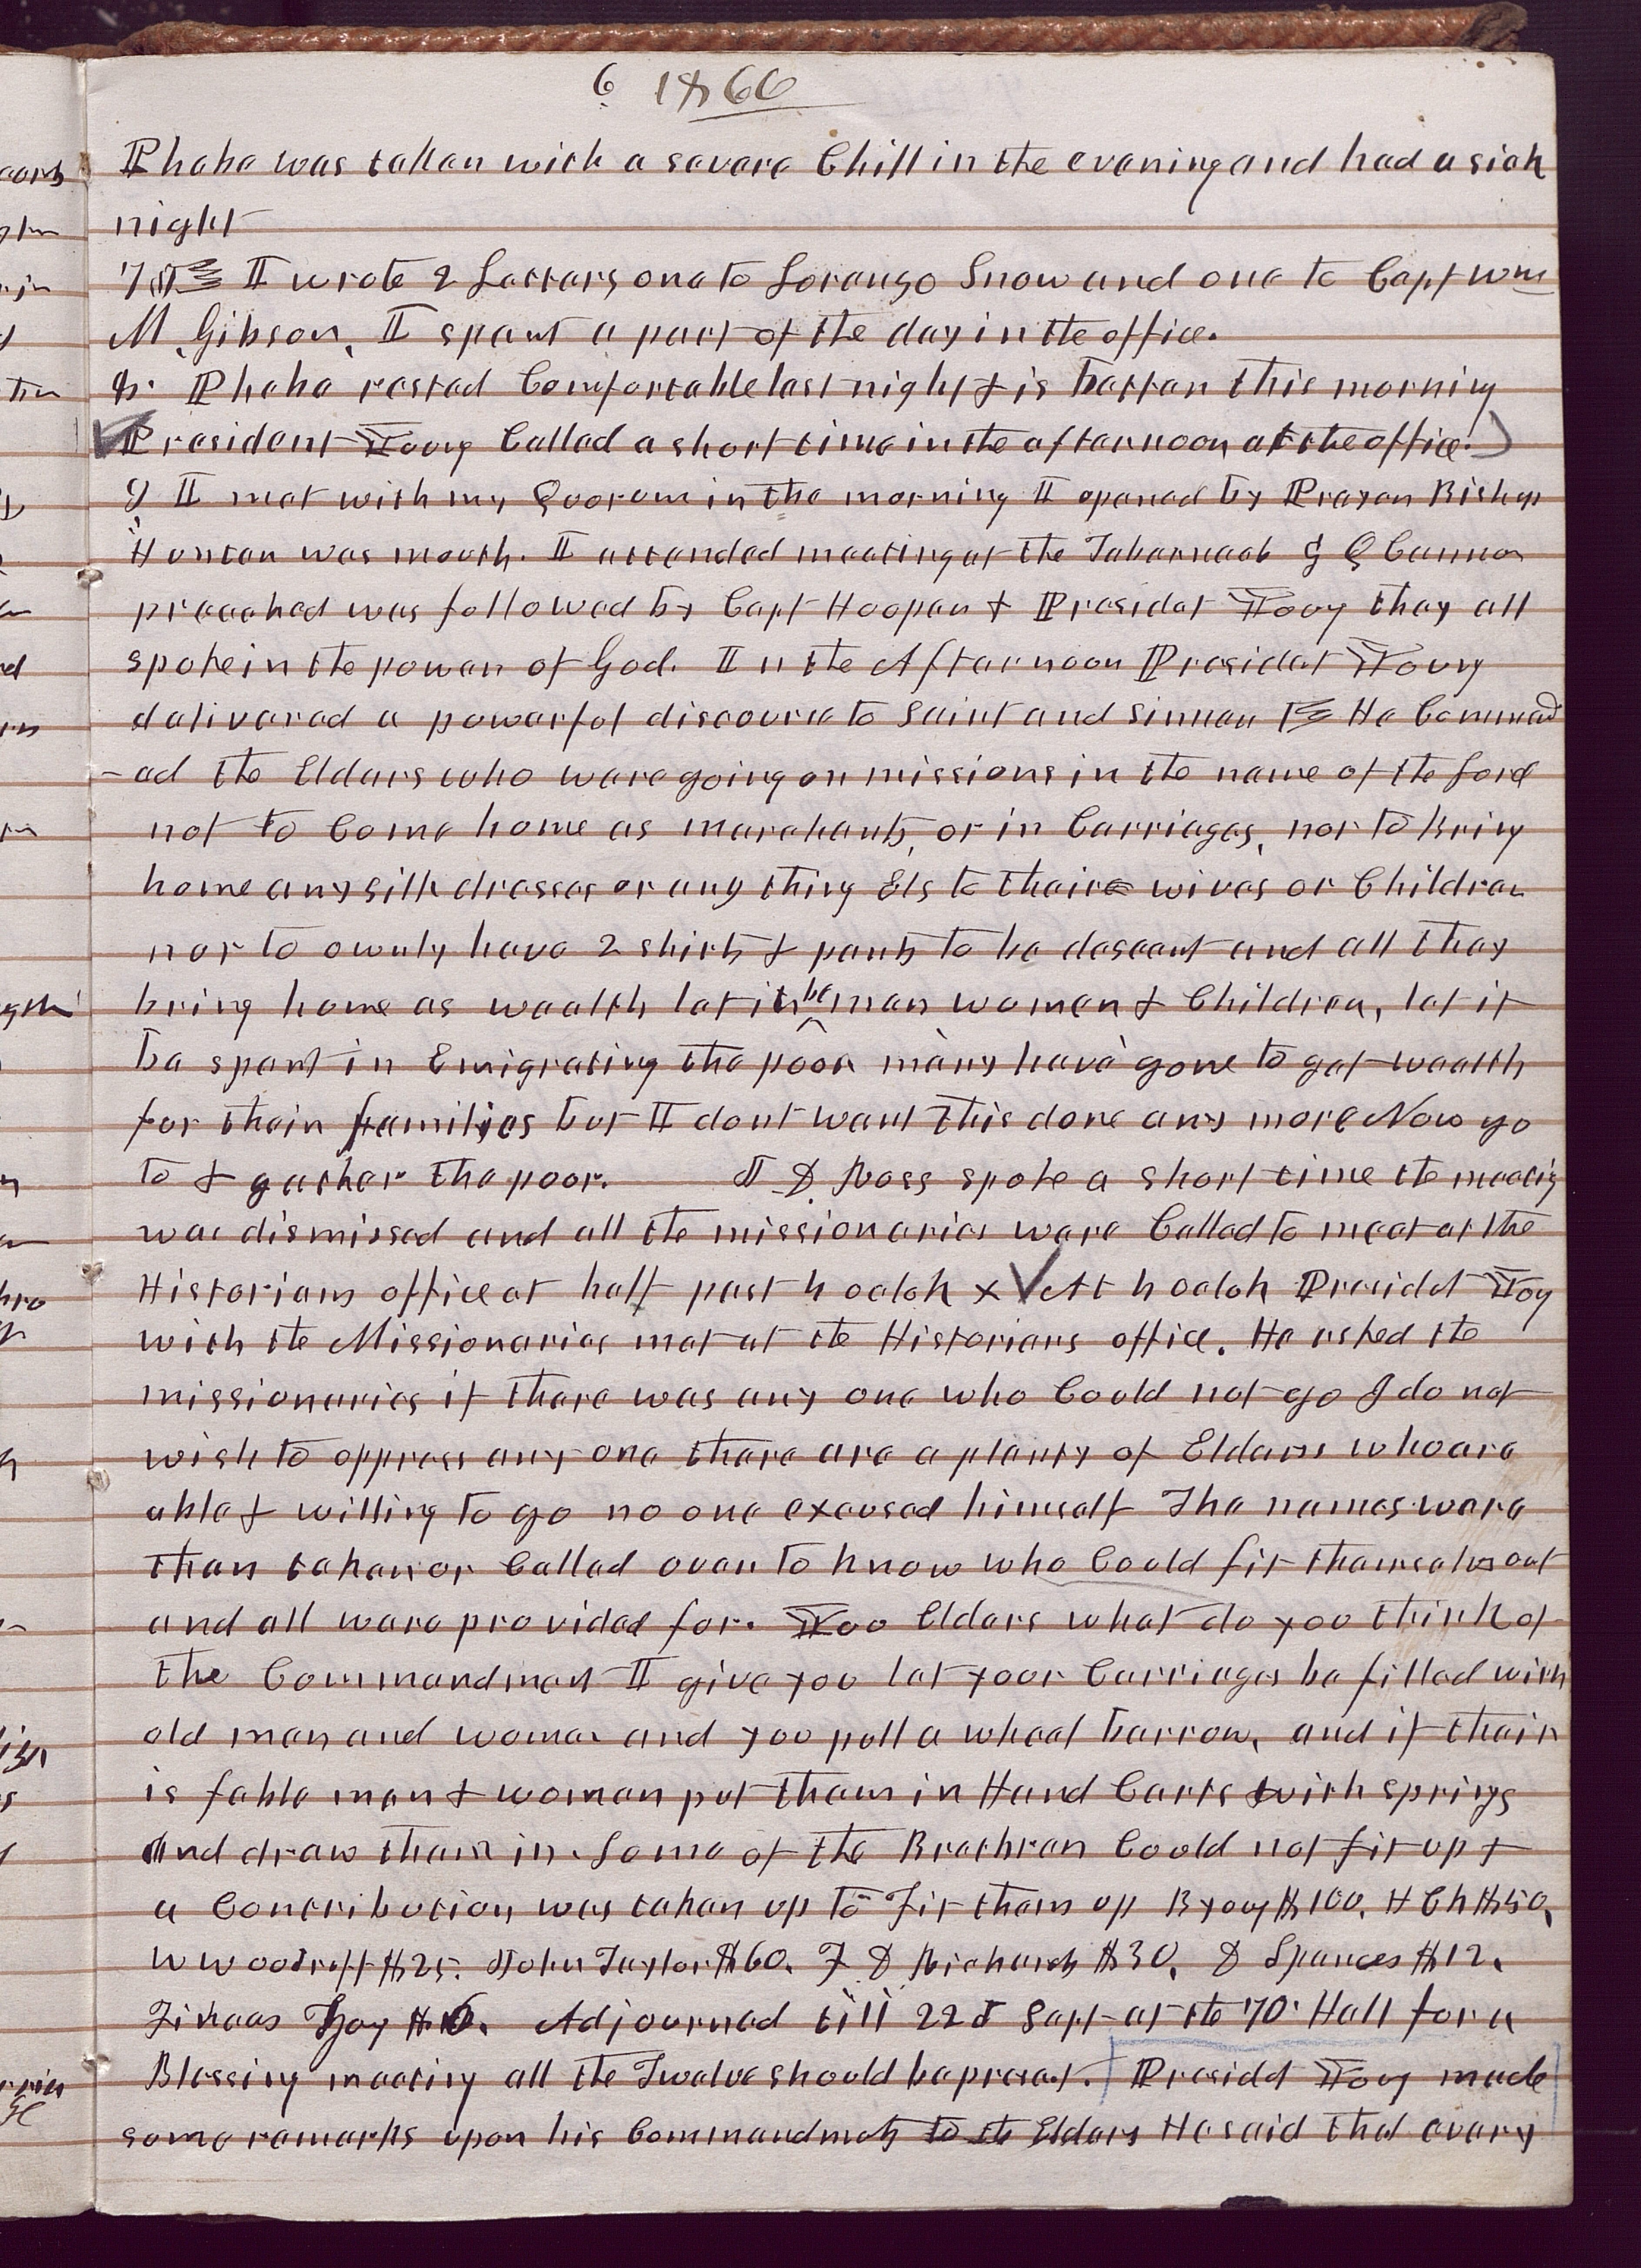 6 1866
Phebe was taken with a severe Chill in the evening and had a sick
night
7th I wrote 2 Letters one to Lorenzo Snow and one to Capt Wm
M. Gibson, I spent a part of the day in the office.
8. Phebe rested Comfortable last night & is better this morning
President Young Called a short time in the afternoon at the office.
9 I met with my Quorum in the morning I opened by Prayer Bishop
Hunter was mouth. I attended meeting at the Tabernacle G Q Cannon
preached was followed by Capt Hooper & Presidet Young they all
spoke in the power of God. In the Afternoon Presidet Young
delivered a powerful discourse to Saint and Sinner He Command
-ed the Elders who were going on missions in the name of the Lord
not to Come home as merchants, or in Carriages, nor to Bring
home any silk dresses or any thing Els to their wives or Children
nor to ownly have 2 shirts & pants to be descent and all they
bring home as wealth let it be men women & Children, let it
be spent in Emigrating the poor many have gone to get wealth
for their families but I dont want this done any more Now go
to & gather the poor. J D Ross spoke a short time the meeting
was dismissed and all the missionaries were Called to meet at the
Historians office at half past 4 oclok x At 4 oclok Presidet Young
with the Missionaries met at the Historians office. He asked the
missionaries if there was any one who Could not go I do not
wish to oppress any one there are a plenty of Elders who are
able & willing to go no one excused himself The names were
then taken or Called over to know who Could fit themselves out
and all were provided for. You Elders what do you think of
the Commandment I give you let your Carriages be filled with
old men and women and you pull a wheel barrow, and if their
is feble men & women put them in Hand Carts with springs
And draw them in. Some of the Brethren Could not fit up &
a Contribution was taken up to Fit them up B Young $100, H C K $50,
W Woodruff $25. John Taylor $60. F D Richards $30, D Spences $12.
Adjourned till 22d Sept at the 70' Hall for a
Blessing meeting all the Twelve should be present. Presidet Young made
some remarks upon his Commandmets to the Elders He said that every